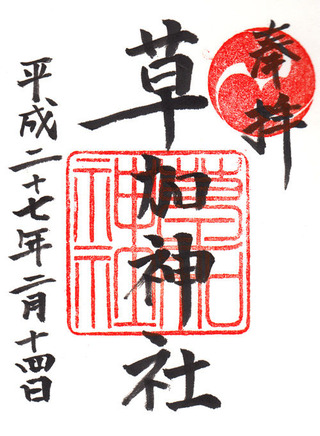 奉拝
草加神社
平成二十七年二月十四日
草加
神社